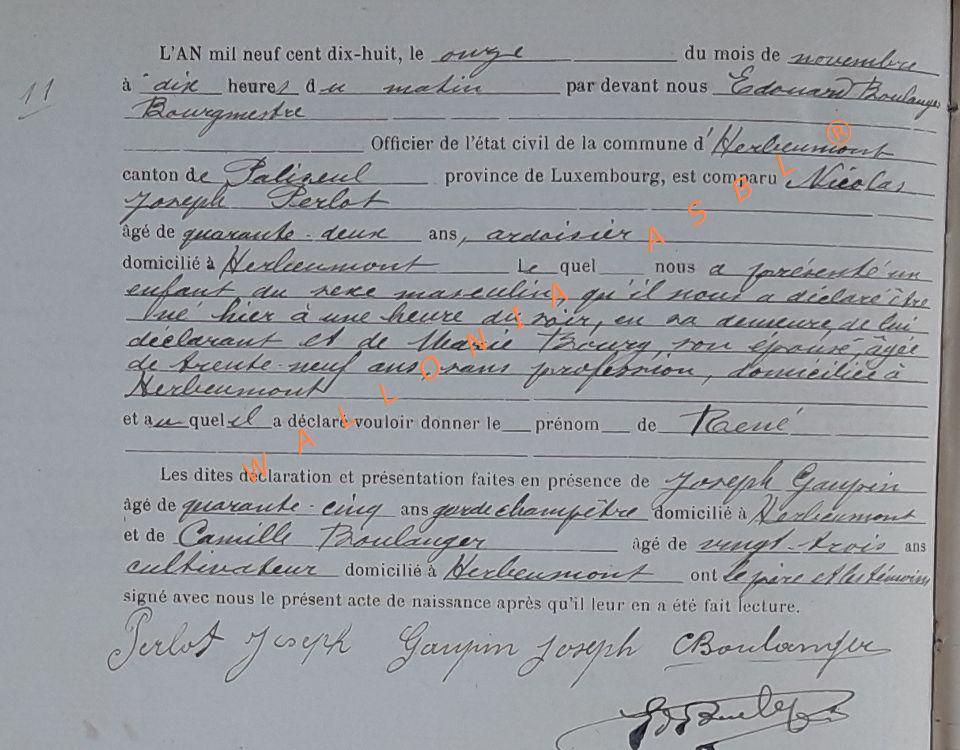 L'AN mil neuf cent dix-huit, le onze du mois de novembre
11
à dix heures du matin par devant nous Edouard Boulanger
Bourgmestre
Officier de l'état civil de la commune d'Herbeumont
canton de Paliseul province de Luxembourg, est comparu Nicolas
Joseph Perlot
âgé de quarante-deux ans, ardoisier
domicilié à Herbeumont Le quel nous a présenté un
enfant du sexe masculin, qu'il nous a déclaré être
né hier à une heure du soir, en sa demeure, de lui
déclarant et de Marie Bourg, son épouse, âgée
de trente-neuf ans, sans profession, domiciliée à
Herbeumont
et auquel il a déclaré vouloir donner le prénom de René
Les dites déclaration et présentation faites en présence de Joseph Gaupin
âgé de quarante-cinq ans garde champêtre domicilié à Herbeumont
et de Camille Boulanger âgé de vingt-trois ans
cultivateur domicilié à Herbeumont ont le père et les témoins
signé avec nous le présent acte de naissance après qu'il leur en a été fait lecture.
Perlot Joseph Gaupin Joseph CBoulanger
WALLONIA ASBL ®